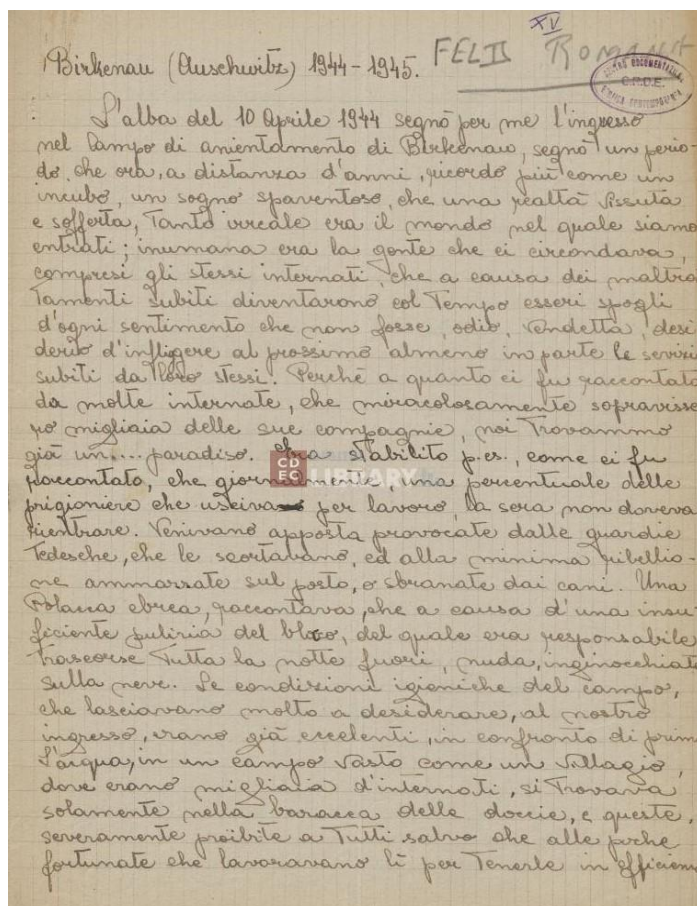 XV
FELIX ROMANA
Birkenau (Auschwitz) 1944-1945.
L'alba del 10 Aprile 1944 segnò per me l'ingresso
nel Campo di anientamento di Birkenau, segnò un perio-
do, che ora, a distanza d'anni, ricordo più come un
incubo, un sogno spaventoso, che una realtà vissuta
e sofferta, Tanto irreale era il mondo nel quale siamo
entrati; inumana era la gente che ci circondava,
compresi gli stessi internati, che a causa dei maltra
Tamenti subiti diventarono col Tempo esseri spogli
d'ogni sentimento che non fosse, odio, vendetta, desi
derio d'infligere al prossimo almeno in parte le sevizie
subiti da loro stessi. Perchè a quanto ci fu raccontato
da molte internate, che miracolosamente sopravisse
ro migliaia delle sue compagnie, noi Trovammo
già un.... paradiso. Era stabilito p.es., come ci fu
raccontato, che giornalmente, una percentuale delle
prigioniere che usciva per lavoro, la sera non doveva
rientrare. Venivano apposta provocate dalle guardie
Tedesche, che le scortavano, ed alla minima ribellio-
ne ammazzate sul posto, o sbranate dai cani. Una
Polacca ebrea, raccontava, che a causa d'una insu
ficiente pulizia del bloco, del quale era responsabile
Trascorse Tutta la notte fuori, nuda, inginocchiata
sulla neve. Le condizioni igieniche del campo,
che lasciavano molto a desiderare, al nostro
ingresso, erano già eccelenti, in confronto di prim
L'acqua, in un campo vasto come un villagio,
dove erano migliaia d'internati, si Trovava
solamente nella baracca delle doccie, e queste,
severamente proibite a Tutti salvo che alle poche
fortunate che lavoravano lì per Tenerle in efficien
CDEC LIBRARY